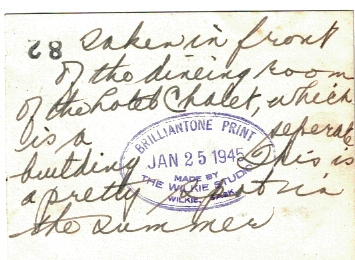 82
Taken in front
of the dineing room
of the hotel Chalet, which
is a seperate
building This is
a pretty spot in
the summer
BRILLIANTONE PRINT
JAN 25 1945
MADE BY
THE WILKIE STUDIO
WILKIE, SASK.